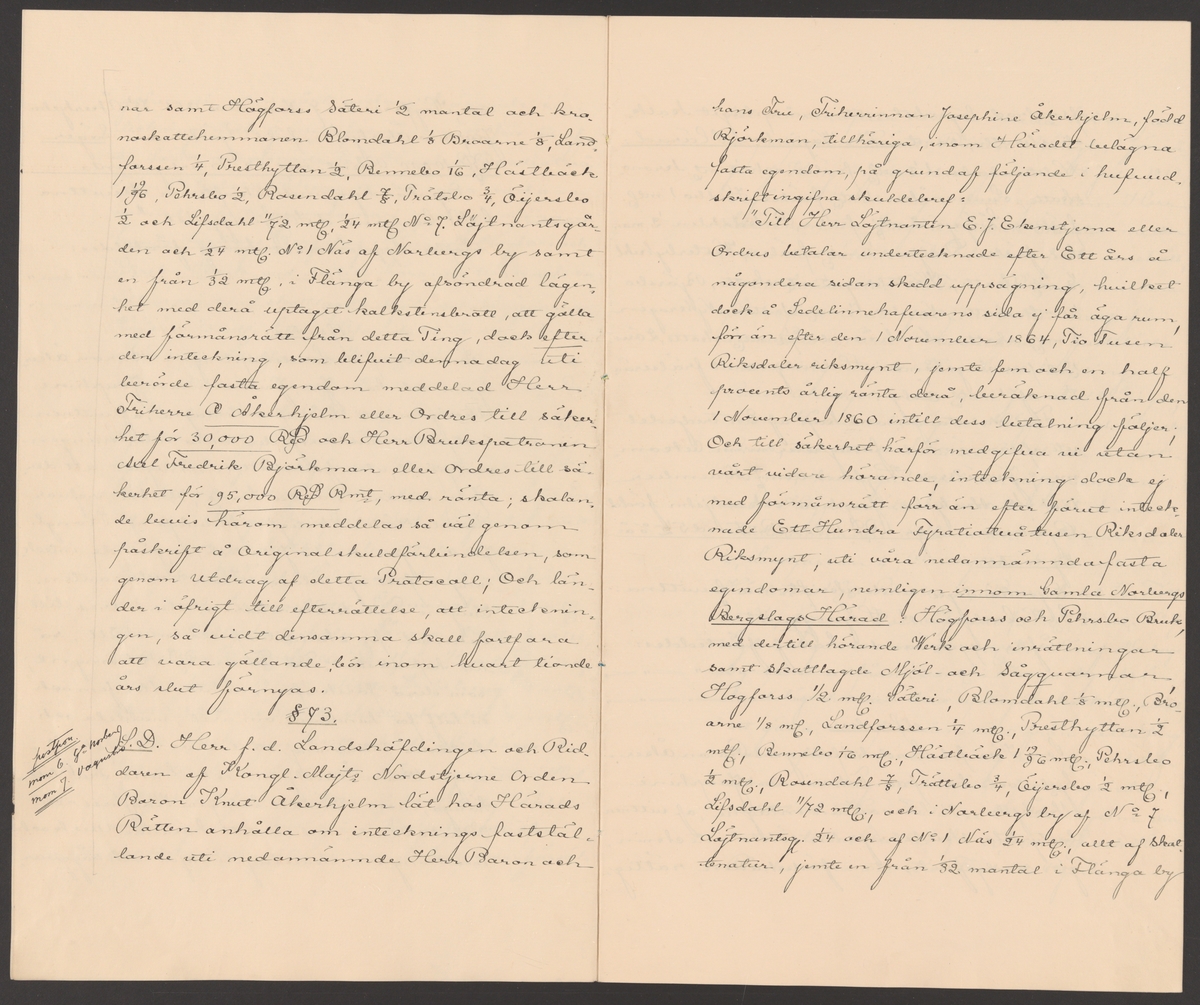 nar samt Högforss Säteri 1/2 mantal och kro-
noskattehemmanen Blomdahl 1/8 Broarne 1/8, Land-
forssen 1/4, Presthyttan 1/2, Bennebo 1/6, Hästbäck
1 19/96, Pehrsbo 1/2, Rosendahl 7/8, Trätsbo 3/4, Öijersbo
1/2 och Lifsdahl 11/72 mtl, 1/24 mtl No 7. Löjtnantsgår-
den och 1/24 mtl. No 1 Näs af Norbergs by samt
en från 1/32 mtl. i Flänga by afsöndrad lägen-
het med derå uptaget kalkstensbrott, att gälla
med förmånsrätt från detta Ting, dock efter
den inteckning, som blifvit denna dag uti
berörde fasta egendom meddelad Herr
Friherre Åkerhjelm eller Ordres till säker-
het för 30,000 Rd och Herr Brukspatronen
Axel Fredrik Björkman eller Ordres till sä-
kerhet för 95,000 Rd Rmt, med ränta; skolan-
de bevis härom meddelas så väl genom
påskrift å Originalskuldförbindelsen, som
genom Utdrag af detta Protocoll; Och län-
der i öfrigt till efterrättelse, att intecknin-
gen, så vidt densamma skall fortfara
att vara gällande, bör inom hvart tionde
års slut förnyas.
§ 73.
S. D. Herr f. d. Landshöfdingen och Rid-
daren af Kongl. Majts Nordstjerne Orden
Baron Knut Åkerhjelm lät hos Härads
Rätten anhålla om intecknings faststäl-
lande uti nedannämnde Herr Baron och
mom 6.
mom 7
hans Fru, Friherrinnan Josephine Åkerhjelm, född
Björkman, tillhöriga, inom Häradet belägna
fasta egendom, på grund af följande i hufvud-
skrift ingifna skuldebref:
"Till Herr Löjtnanten E. J. Ekenstjerna eller
Ordres betalar undertecknade efter Ett års å
någondera sidan skedd uppsägning, hvilket
dock å Sedelinnehafvarens sida ej får äga rum,
förr än efter den 1 November 1864, Tio Tusen
Riksdaler riksmynt, jemte fem och en half
procents årlig ränta derå, beräknad från den
1 November 1860 intill dess betalning följer;
Och till säkerhet härför medgifva vi utan
vårt vidare hörande, inteckning dock ej
med förmånsrätt förr än efter förut inteck-
nade Ett Hundra Fyratiotvåtusen Riksdaler
Riksmynt, uti våra nedannämnda fasta
egendomar, nemligen innom Gamla Norbergs
Bergslags Härad: Högforss och Pehrsbo Bruk,
med dertill hörande Werk och inrättningar
samt skattlagde Mjöl- och Sågqvarnar
Högforss 1/2 mtl. Säteri, Blomdahl 1/8 mtl., Bro-
arne 1/8 mtl., Landforssen 1/4 mtl., Presthyttan 1/2
mtl., Bennebo 1/6 mtl., Hästbäck 1 19/96 mtl., Pehrsbo
1/2 mtl., Rosendahl 7/8, Trättsbo 3/4, Öijersbo 1/2 mtl.,
Lifsdahl 11/72 mtl., och i Norbergs by af No 7
Löjtnantsg. 1/24 och af No 1 Näs 1/24 mtl., allt af skat-
tenatur, jemte en från 1/32 mantal i Flänga by